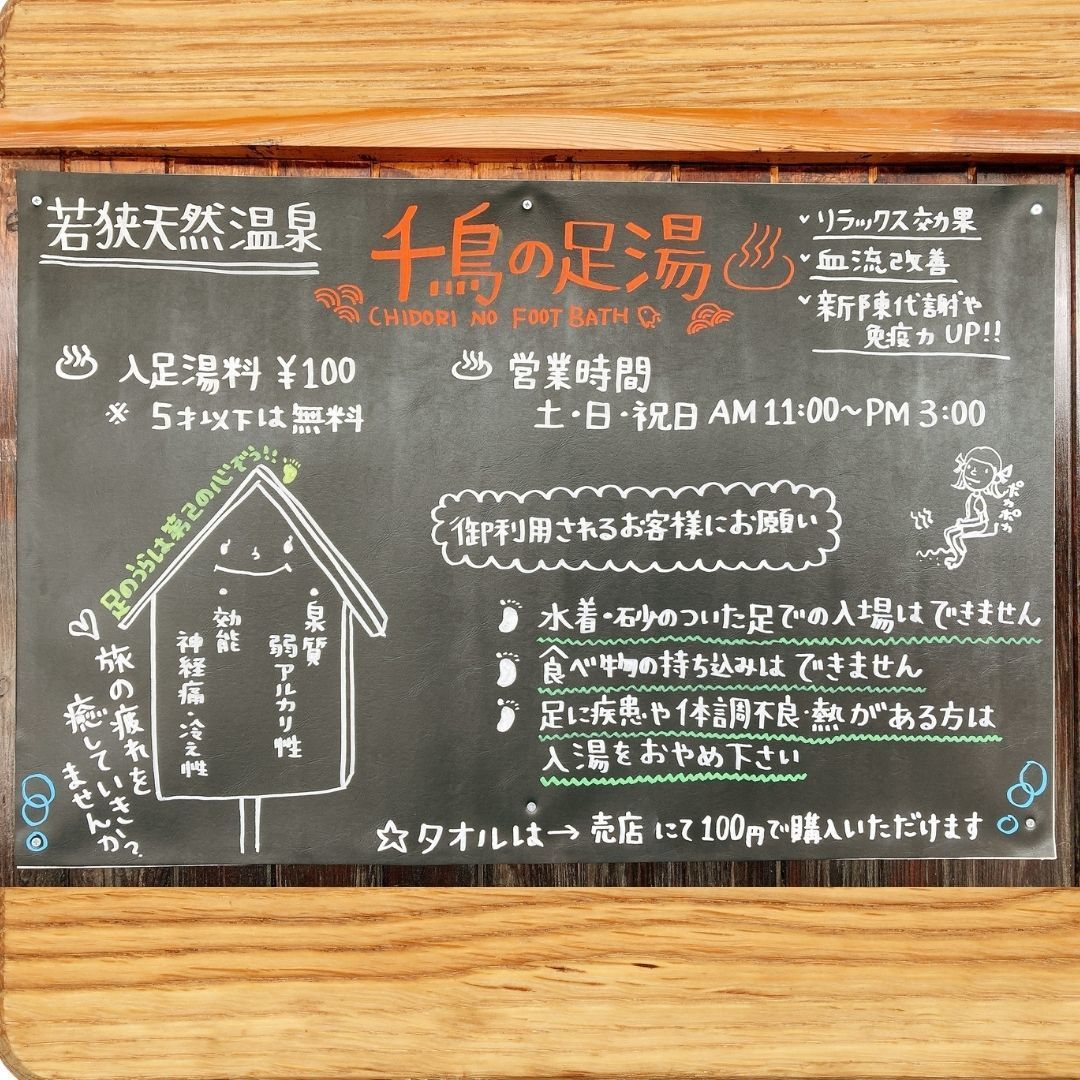 若狭天然温泉
千鳥の足湯
CHIDORI NO FOOT BATH
リラックス効果
血流改善
新陳代謝や
免疫力 UP!!
入足湯料 ¥100
※ 5才以下は無料
営業時間
土・日・祝日 AM 11:00～PM 3:00
ポカポカ
足のうらは第2の心ぞう!!
・泉質
弱アルカリ性
・効能
神経痛・冷え性
♡旅の疲れを
癒していきか?
ませんか
御利用されるお客様にお願い
水着・砂のついた足での入場はできません
食べ物の持ち込みはできません
足に疾患や体調不良・熱がある方は
入湯をおやめ下さい
☆タオルは→売店にて100円で購入いただけます